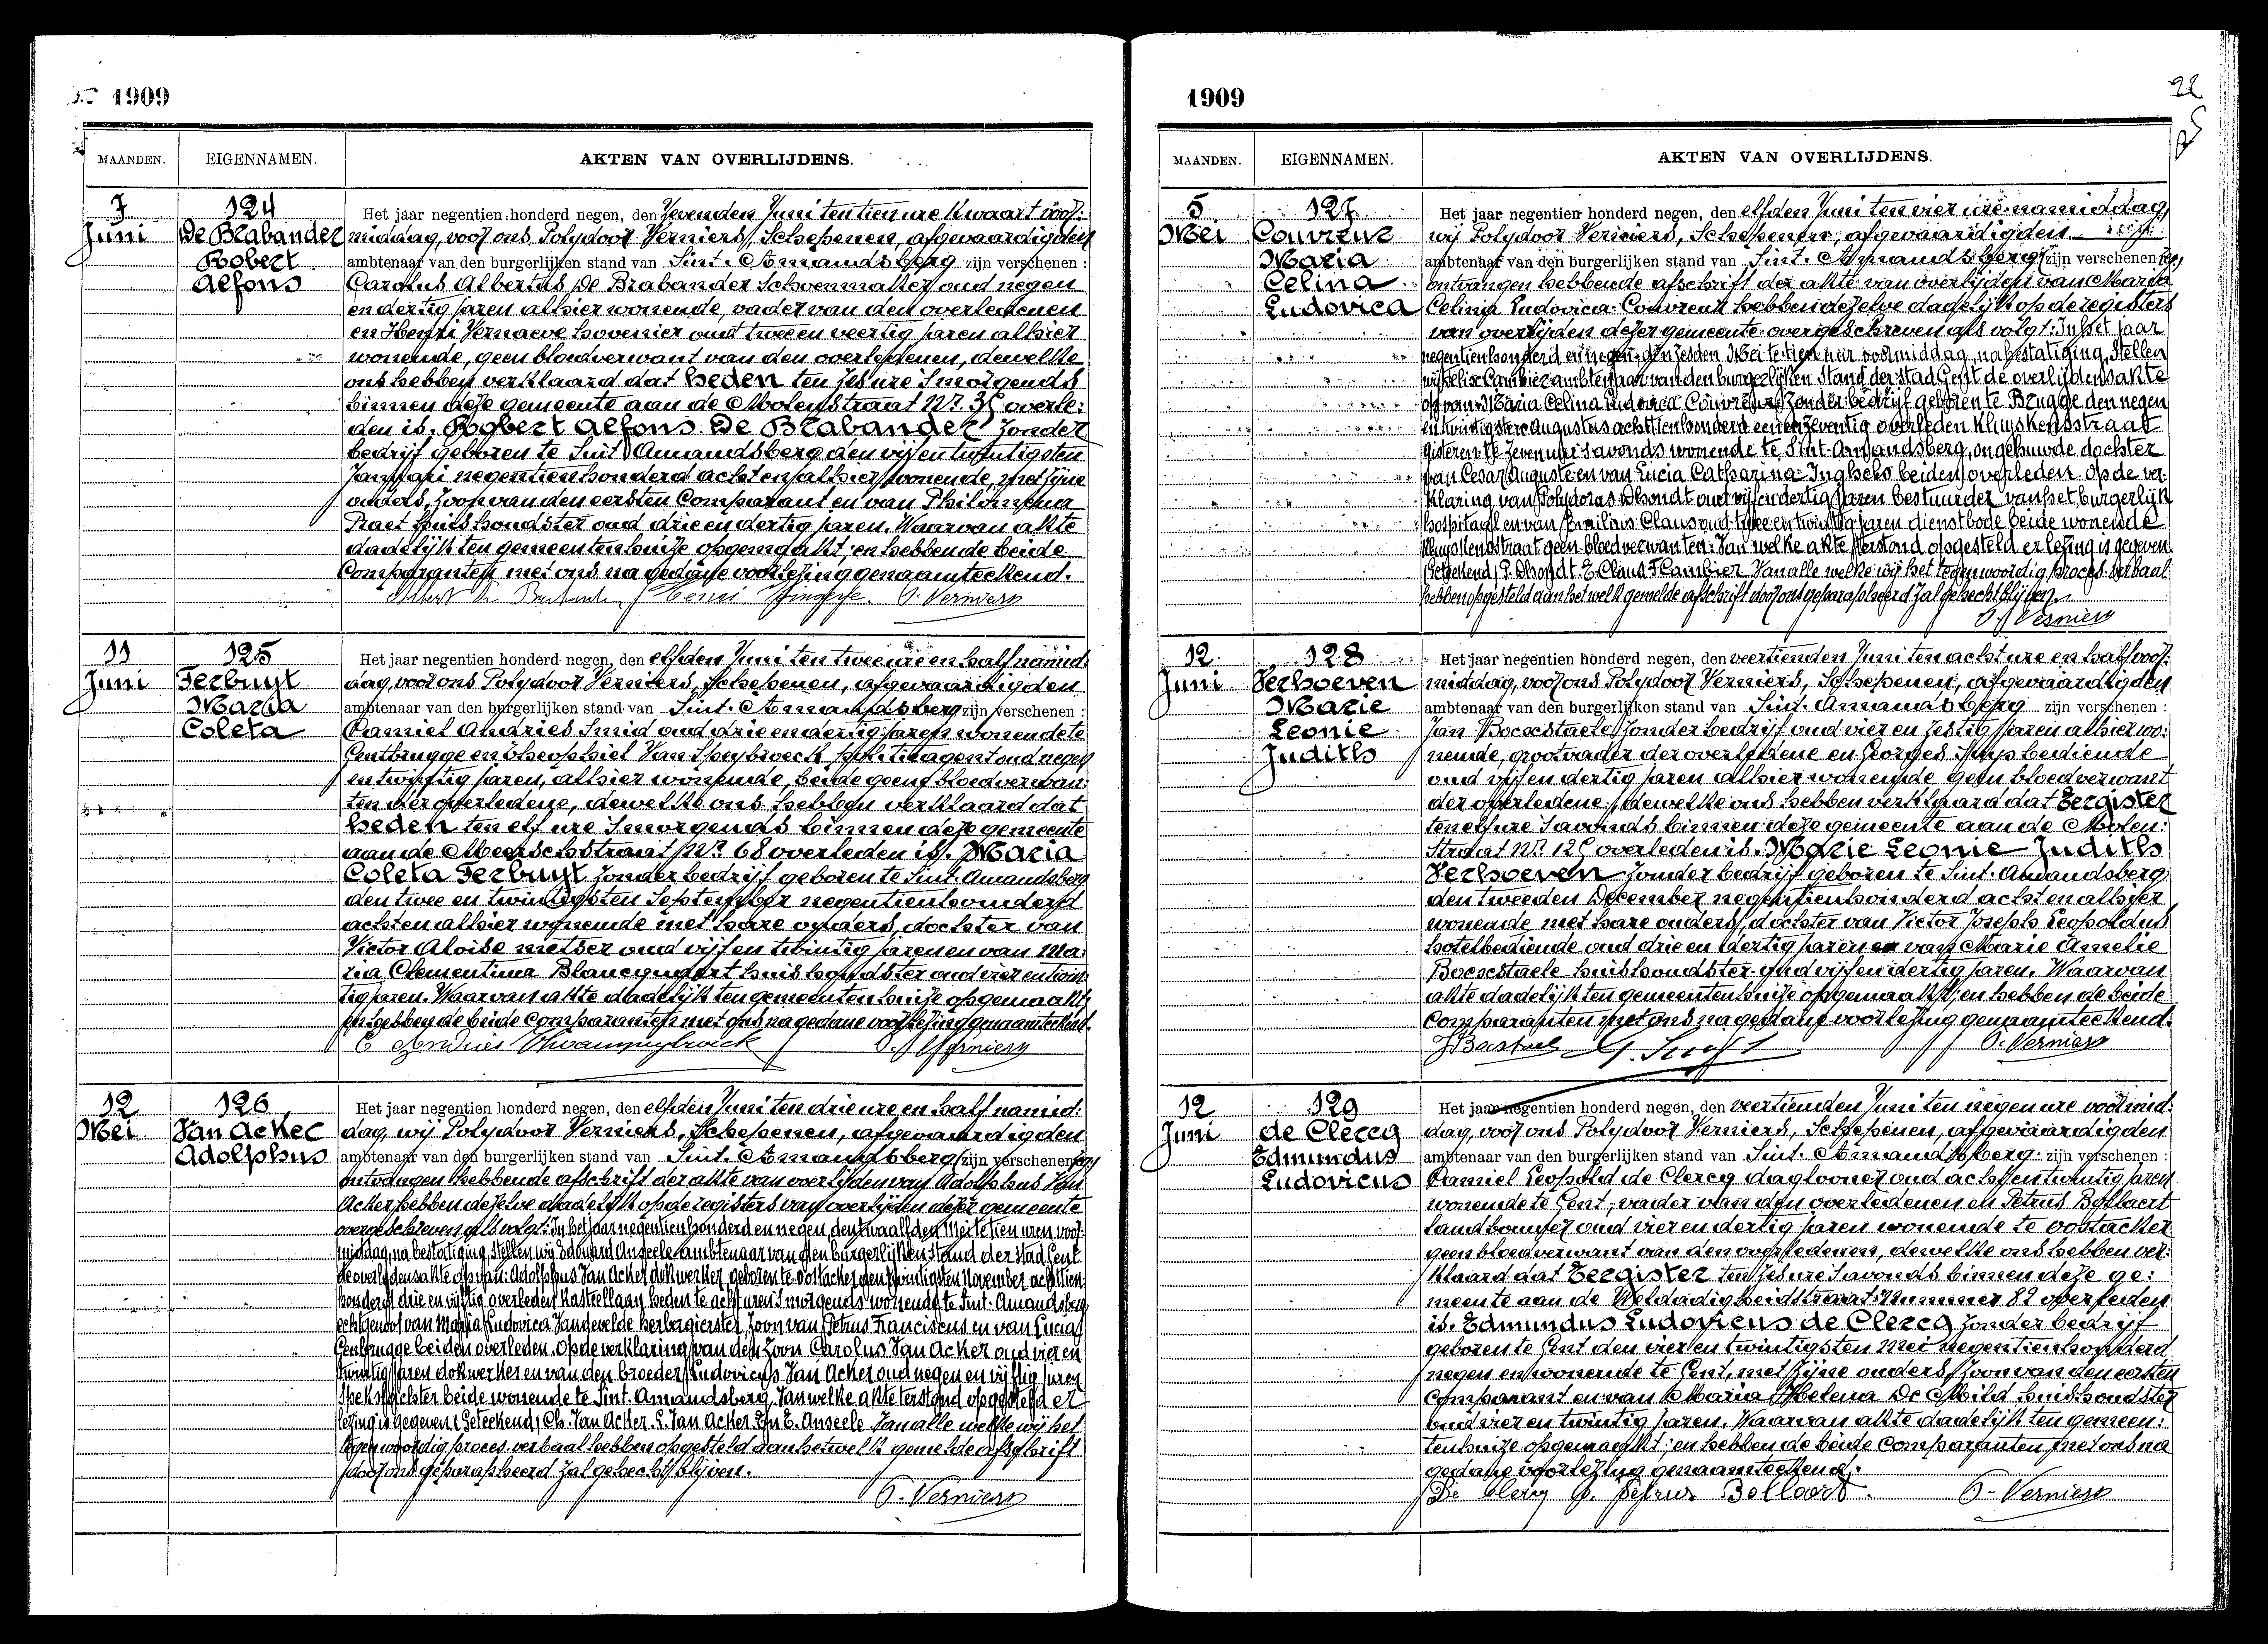 1909
MAANDEN. EIGENNAMEN. AKTEN VAN OVERLIJDENS.
7 Juni
124
De Brabander
Robert
Alfons
Het jaar negentien honderd negen, den Zevenden Juni ten tien ure kwaart voor:
middag, voor ons Polydoor Verniers, Schepenen, afgevaardigden
ambtenaar van den burgerlijken stand van Sint. Amandsberg zijn verschenen:
Carolus Albertus De Brabander Schoenmaker oud negen
en dertig jaren alhier wonende, vader van den overledenen
en Henri Vernaeve hovenier oud twee en veertig jaren alhier
wonende, geen bloedverwant van den overledenen, dewelke
ons hebben verklaard dat heden ten zes ure s'morgends
binnen deze gemeente aan de Molenstraat Nr. 35 overle:
den is. Robert Alfons De Brabander Zonder
bedrijf geboren te Sint Amandsberg den vijf en twintigsten
Januari negentien honderd acht en alhier wonende, met zijne
ouders, zoon van den eersten Comparant en van Philomena
Praet huishoudster oud drie en dertig jaren. Waarvan akte
dadelijk ten gemeentenhuize opgemaakt; en hebben de beide
Comparanten met ons na gedane voorlezing genaamteekend.
P. Verniers
11 Juni
125
Terbuyt
Maria
Coleta
Het jaar negentien honderd negen, den elfden Juni ten twee ure en half namid:
dag, voor ons Polydoor Verniers, Schepenen, afgevaardigden
ambtenaar van den burgerlijken stand van Sint. Amandsberg zijn verschenen:
Camiel Andries Smid oud drie en dertig jaren wonende te
Gentbrugge en Theophiel Van Speybroeck politieagent oud negen
en twintig jaren, alhier wonende, beide geene bloedverwan:
ten der overledene, dewelke ons hebben verklaard dat
heden ten elf ure s'morgends binnen deze gemeente
aan de Meerschstraat Nr. 68 overleden is. Maria
Coleta Terbuyt Zonder bedrijf geboren te Sint. Amandsberg
den twee en twintigsten September negentien honderd
acht en alhier wonende met hare ouders, dochter van
Victor Aloise metser oud vijf en twintig jaren en van Ma:
ria Clementina Blancquaert huishoudster oud vier en twin:
tig jaren. Waarvan akte dadelijk ten gemeentenhuize opgemaakt;
en hebben de beide Comparanten met ons na gedane voorlezing genaamteekend.
C Andries P. Verniers
12 Mei
126
Van Acker
Adolphus
Het jaar negentien honderd negen, den elfden Juni ten drie ure en half namid:
dag, wij Polydoor Verniers, Schepenen, afgevaardigden
ambtenaar van den burgerlijken stand van Sint. Amandsberg zijn verschenen:
ontvangen hebbende afschrift der akte van overlijden van Adolphus Van
Acker hebben dezelve dadelijk op de registers van overlijden dezer gemeente
overgeschreven als volgt: In het jaar negentien honderd en negen, den twaalfden Mei te tien uren voor:
middag, na bestatiging, Stellen wij Edouard Anseele ambtenaar van den burgerlijken Stand der Stad Gent
de overlijdensakte op van: Adolphus Van Acker dokwerker, geboren te Oostacker den twintigsten November achttien:
honderd drie en vijftig overleden Kasteellaan heden te acht uren s'morgends wonende te Sint. Amandsberg
echtgenoot van Maria Ludovica Vandevelde herbergierster, Zoon van Petrus Franciscus en van Lucia
Gentbrugge beiden overleden. Op de verklaring van den Zoon Carolus Van Acker oud vier en
twintig jaren dokwerker en van den broeder Ludovicus Van Acker oud negen en vijftig jaren
beide wonende te Sint. Amandsberg. Van welke akte terstond opgesteld er
lezing is gegeven (Geteekend) Ch. Van Acker. L. Van Acker. En E. Anseele. Van alle welke wij het
tegenwoordig proces verbaal hebben opgesteld aan hetwelk gemelde afschrift
door ons geparapheerd zal gehecht blijven.
P. Verniers
1909
22
MAANDEN. EIGENNAMEN. AKTEN VAN OVERLIJDENS.
5 Mei
127
Couvreur
Maria
Celina
Ludovica
Het jaar negentien honderd negen, den elfden Juni ten vier ure namiddag,
wij Polydoor Verniers, Schepenen, afgevaardigden
ambtenaar van den burgerlijken stand van Sint. Amandsberg zijn verschenen
ontvangen hebbende afschrift der akte van overlijden van Maria
Celina Ludovica Couvreur hebben dezelve dadelijk op de registers
van overlijden dezer gemeente overgeschreven als volgt: In het jaar
negentien honderd en negen, den zesden Mei te tien uur voormiddag, na bestatiging, Stellen
wij Felix Cambier ambtenaar van den burgerlijken Stand der Stad Gent de overlijdensakte
op van: Maria Celina Ludovica Couvreur Zonder bedrijf geboren te Brugge den negen
en twintigsten Augustus achttien honderd een en zeventig overleden Kluyskensstraat
gisteren te zeven uur s'avonds wonende te Sint-Amandsberg, ongehuwde dochter
van Cesar Auguste en van Lucia Catharina Inghels beiden overleden. Op de ver:
klaring van Polydorus Dhondt oud vijf en dertig jaren bestuurder van het burgerlijk
hospitaal en van Emilius Claus oud twee en twintig jaren dienstbode beide wonende
Kluyskensstraat geen bloedverwanten: Van welke akte terstond opgesteld er lezing is gegeven
(Geteekend) P. Dhondt. E. Claus. F. Cambier Van alle welke wij het tegenwoordig proces verbaal
hebben opgesteld aan hetwelk gemelde afschrift door ons geparapheerd Zal gehecht blijven.
P. Verniers
12 Juni
128
Verhoeven
Marie
Leonie
Judith
Het jaar negentien honderd negen, den veertienden Juni ten acht ure en half voor:
middag, voor ons Polydoor Verniers, Schepenen, afgevaardigden
ambtenaar van den burgerlijken stand van Sint. Amandsberg zijn verschenen:
Jan Boesstaele Zonder bedrijf oud vier en zestig jaren alhier wo:
nende, grootvader der overledene en Georges bediende
oud vijf en dertig jaren alhier wonende geen bloedverwant
der overledene, dewelke ons hebben verklaard dat Eergister
ten elf ure s'avonds binnen deze gemeente aan de Molen:
straat Nr. overleden is. Marie Leonie Judith
Verhoeven Zonder bedrijf geboren te Sint. Amandsberg
den tweeden December negentien honderd acht en alhier
wonende met hare ouders, dochter van Victor Joseph Leopoldus
hotelbediende oud drie en dertig jaren en van Marie Amelie
Boesstaele huishoudster oud vijf en dertig jaren. Waarvan
akte dadelijk ten gemeentenhuize opgemaakt; en hebben de beide
Comparanten met ons na gedane voorlezing genaamteekend.
P. Verniers
12 Juni
129
de Clercq
Edmundus
Ludovicus
Het jaar negentien honderd negen, den veertienden Juni ten negen ure voormid:
dag, voor ons Polydoor Verniers, Schepenen, afgevaardigden
ambtenaar van den burgerlijken stand van Sint. Amandsberg zijn verschenen:
Camiel Leopold de Clercq daglooner oud acht en twintig jaren
wonende te Gent, vader van den overledenen en Petrus Bollaert
landbouwer oud vier en dertig jaren wonende te Oostacker
geen bloedverwant van den overledenen, dewelke ons hebben ver:
klaard dat Eergister ten zes ure s'avonds binnen deze ge:
meente aan de Weldadigheidstraat Nummer 82 overleden
is. Edmundus Ludovicus de Clercq Zonder bedrijf
geboren te Gent den vier en twintigsten Mei negentien honderd
negen en wonende te Gent, met zijne ouders, Zoon van den eersten
Comparant en van Maria Helena De Mild huishoudster
oud vier en twintig jaren. Waarvan akte dadelijk ten gemeen:
tenhuize opgemaakt; en hebben de beide Comparanten met ons na
gedane voorlezing genaamteekend.
De Clercq C. Petrus Bollaert. P. Verniers